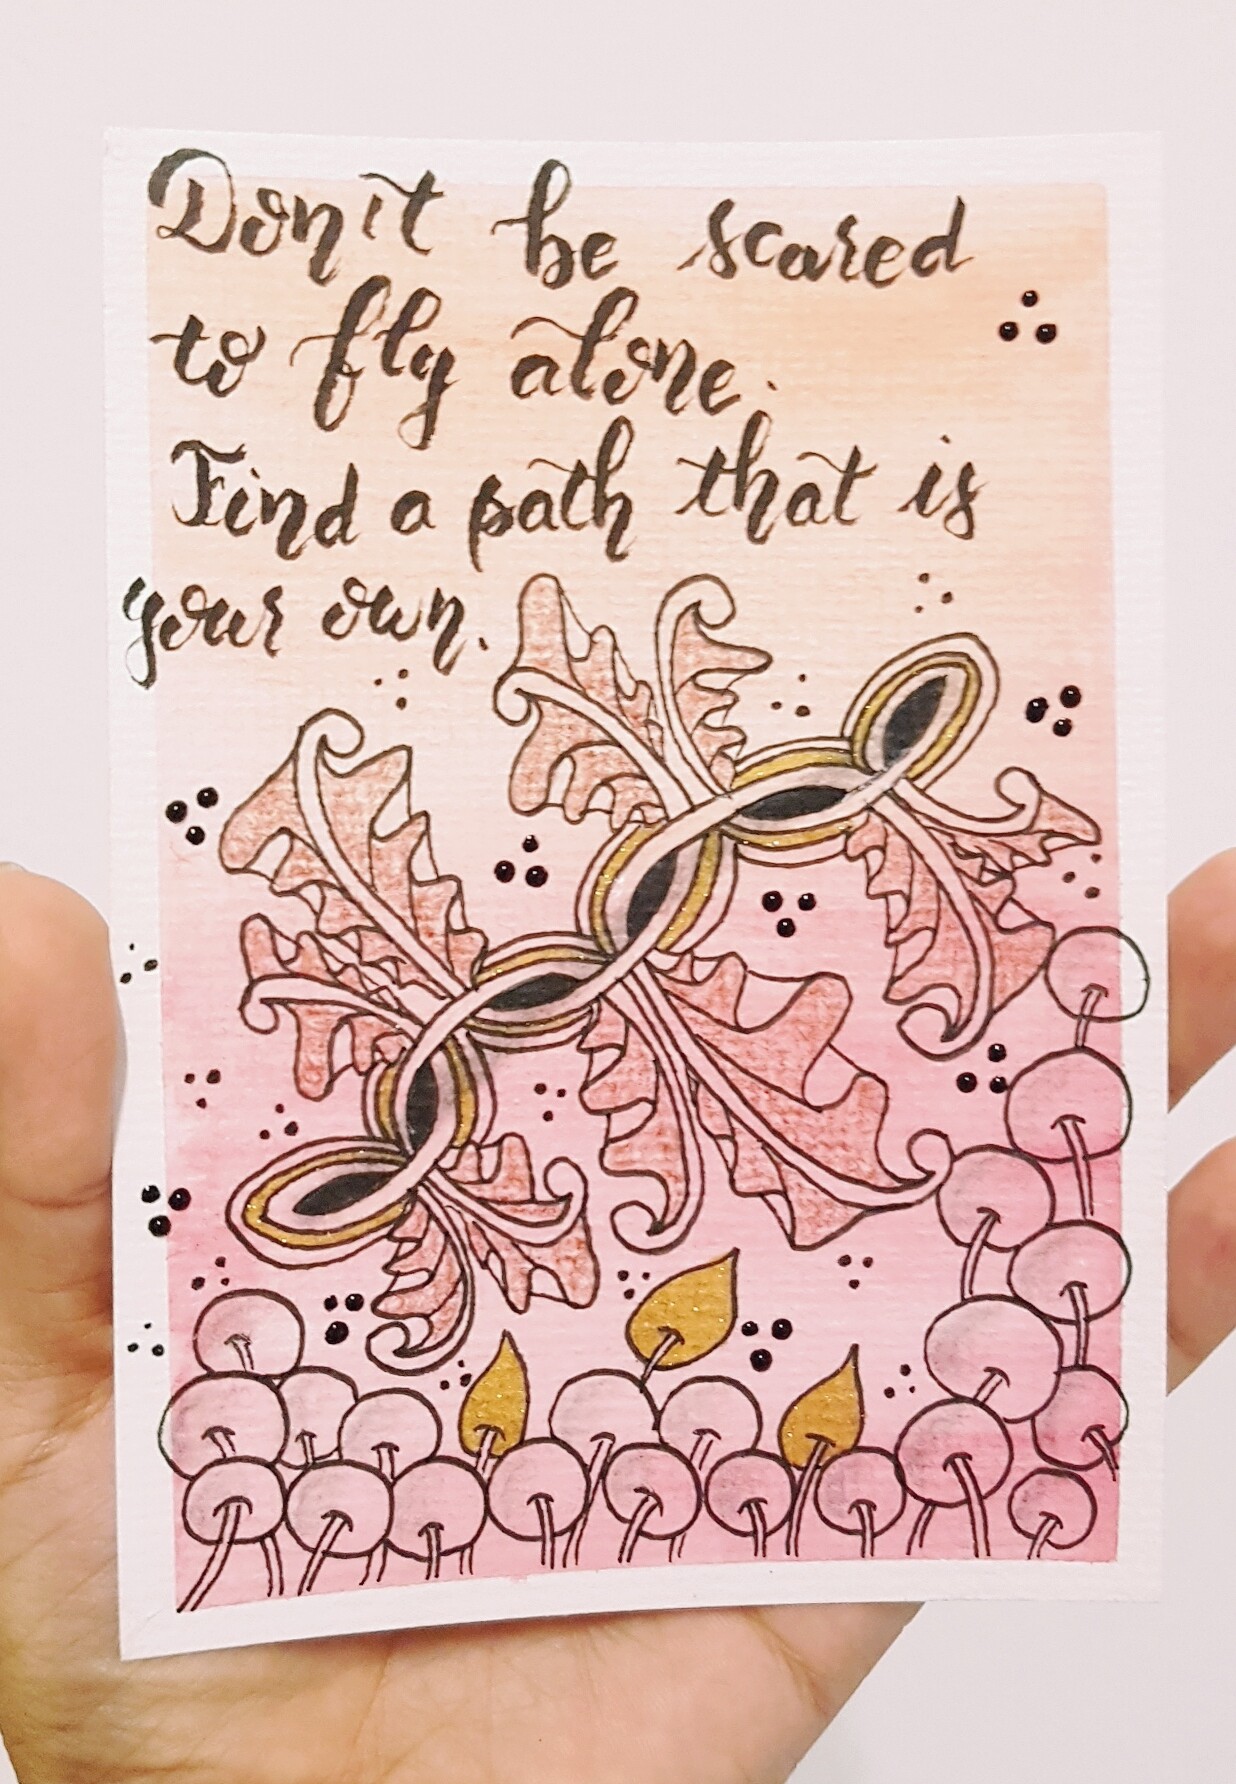 Don't be scared
to fly alone.
Find a path that is
your own.